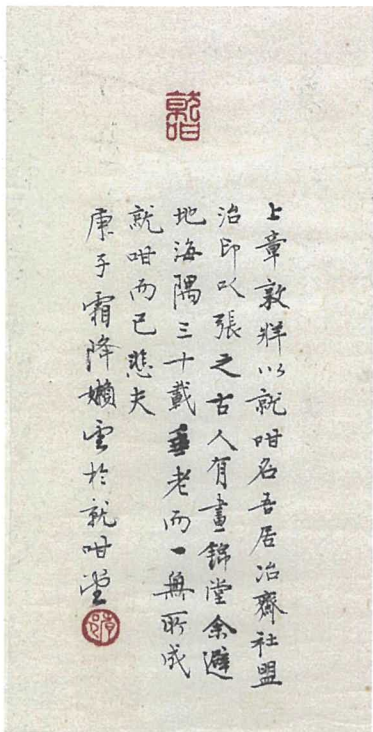 就咁
上章敦牂以就咁名吾居冶齋社盟
治印㕥張之古人有晝錦堂余避
地海隅三十載垂老而一無所成
就咁而已悲夫
庚子霜降嬾雲於就咁堂